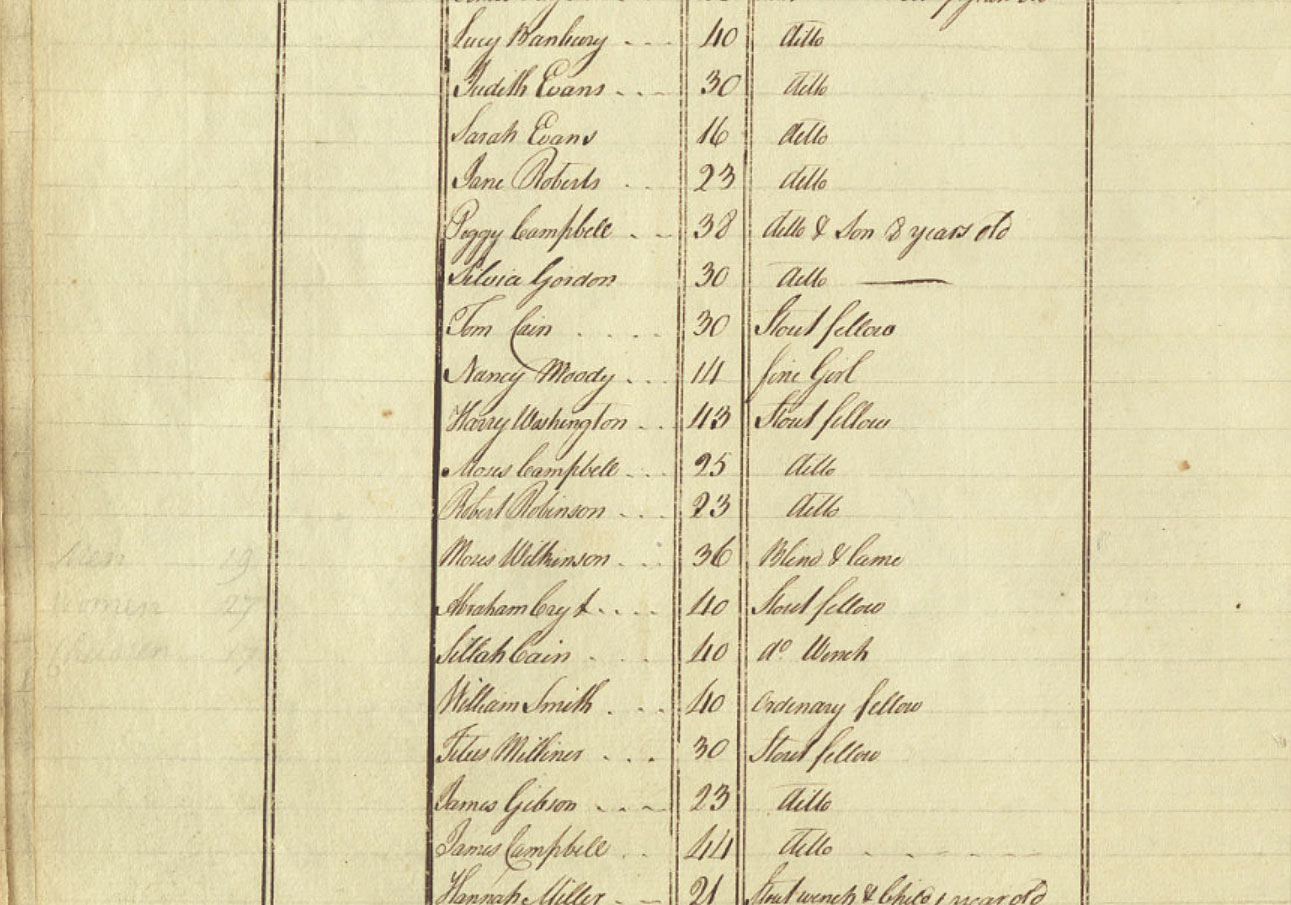 Lucy Banbury - - - 40 ditto
Judith Evans - - - 30 ditto
Sarah Evans 16 ditto
Jane Roberts - - 23 ditto
Peggy Campbell - - 38 ditto & Son 8 years old
Silvia Gordon 30 ditto
Tom Cain - - - - 30 Stout fellow
Nancy Moody - - - 14 fine Girl
Harry Washington - - 43 Stout fellow
Moses Campbell - - - 25 ditto
Robert Robinson - - - 23 ditto
Moses Wilkinson - - - 36 Blind & lame
Men 19
Abraham - - - - 40 Stout fellow
Women 27
Sillah Cain - - - 40 do Wench
Children 17
William Smith - - - 40 Ordenary fellow
Titus Milliner - - - 30 Stout fellow
James Gibson - - - 23 ditto
James Campbell - - 44 ditto
Hannah Miller - - 21 Stout wench & Child 1 year old